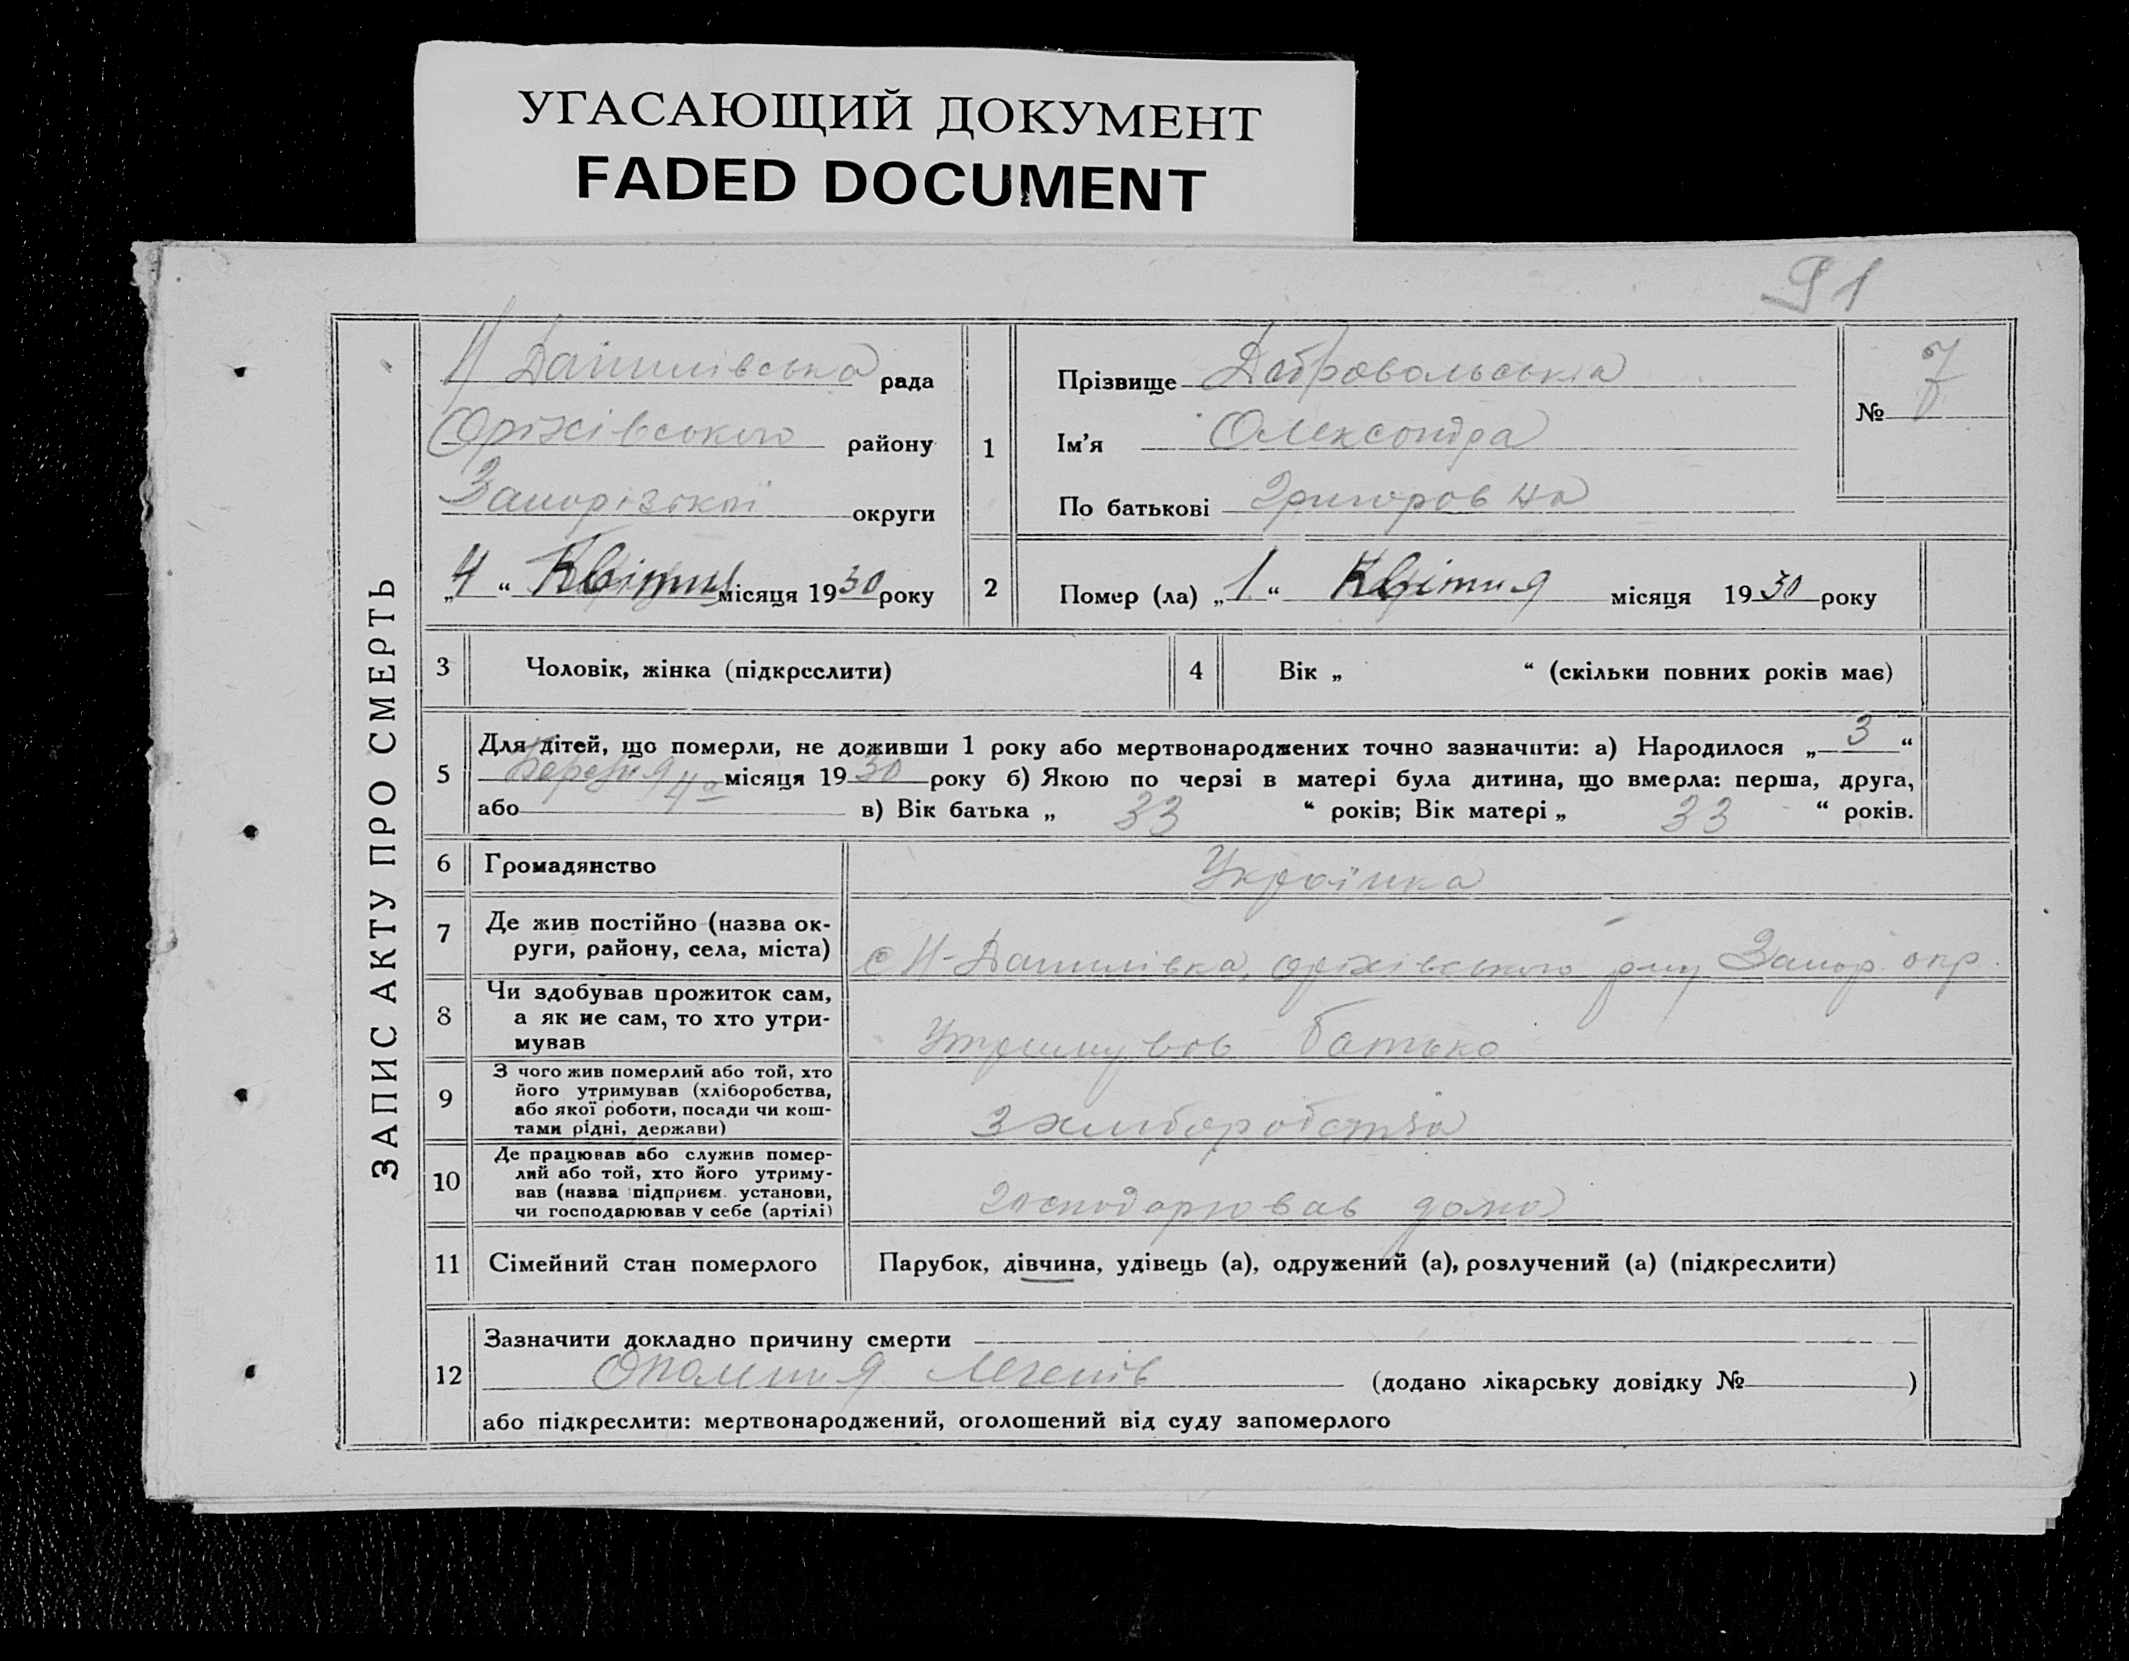 УГАСАЮЩИЙ ДОКУМЕНТ
FADED DOCUMENT
91
ЗАПИС АКТУ ПРО СМЕРТЬ
Н Данилівська рада
Оріхівського району
Запорізької округи
„4“ Квітня місяця 1930 року
1
Прізвище Добровольська
Ім’я Олександра
По батькові Григоровна
№ 7
2
Помер (ла) „1“ Квітня місяця 1930 року
3 Чоловік, жінка (підкреслити)
4 Вік „ “ (скільки повних років має)
5 Для дітей, що померли, не доживши 1 року або мертвонароджених точно зазначити: а) Народилося „3“
Березня місяця 1930 року б) Якою по черзі в матері була дитина, що вмерла: перша, друга,
або 4а в) Вік батька „ 33 “ років; Вік матері „ 33 “ років.
6 Громадянство Українка
7 Де жив постійно (назва ок-
руги, району, села, міста)
с Н-Данилівка, Оріхівського р-ну Запор. окр.
8 Чи здобував прожиток сам,
а як не сам, то хто утри-
мував
Утримував батько
9 З чого жив померлий або той, хто
його утримував (хліборобства,
або якої роботи, посади чи кош-
тами рідні, держави)
З хліборобства
10 Де працював або служив помер-
лий або той, хто його утриму-
вав (назва підприєм. установи,
чи господарював у себе (артілі)
господарював дома
11 Сімейний стан померлого Парубок, дівчина, удівець (а), одружений (а), розлучений (а) (підкреслити)
12 Зазначити докладно причину смерти
Опалення легенів (додано лікарську довідку № )
або підкреслити: мертвонароджений, оголошений від суду запомерлого